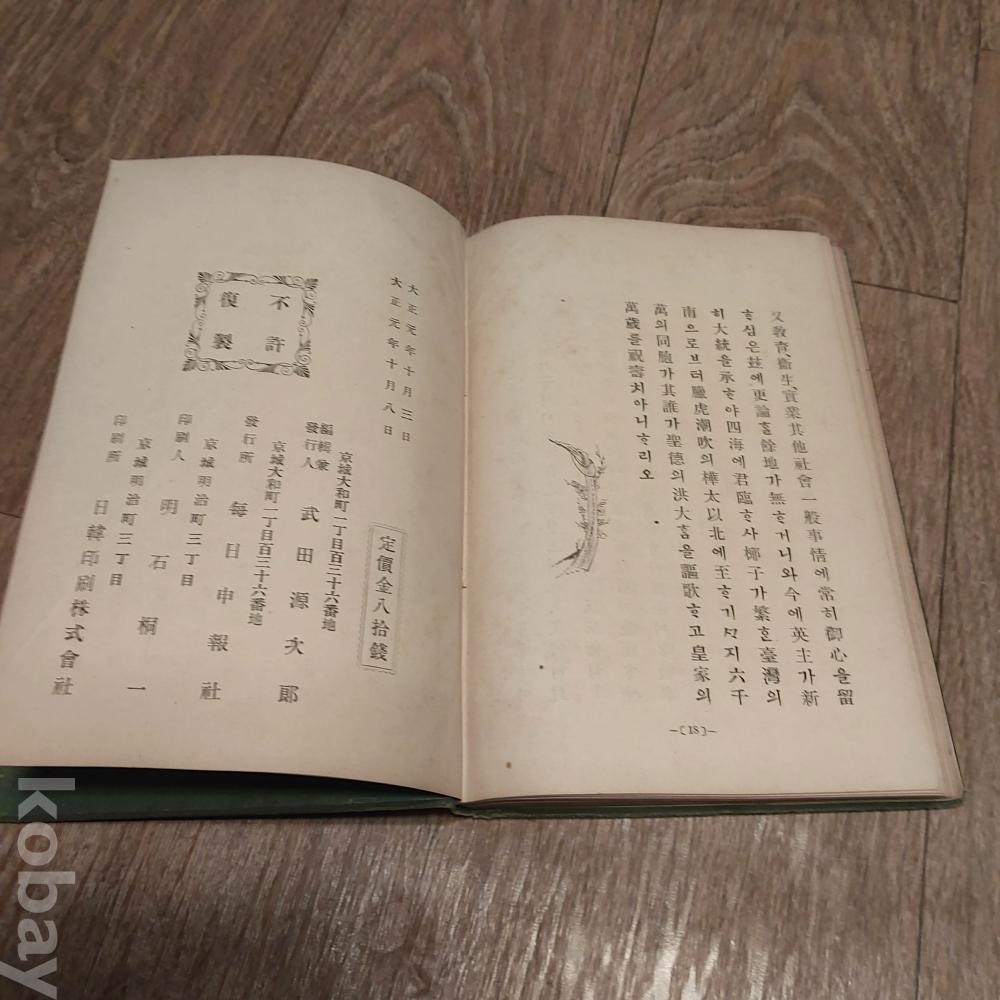 又教育、衞生、實業其他社會一般事情에常히御心을留
ᄒᆞ심은玆에更論ᄒᆞᆯ餘地가無ᄒᆞ거니와今에英主가新
히大統을承ᄒᆞ야四海에君臨ᄒᆞ사椰子가繁ᄒᆞᆫ臺灣의
南으로브터臘虎潮吹의樺太以北에至ᄒᆞ기ᄭᆞ지六千
萬의同胞가其誰가聖德의洪大ᄒᆞᆷ을謳歌ᄒᆞ고皇家의
萬歲를祝壽치아니ᄒᆞ리오
—〔18〕—
大正元年十月三日
大正元年十月八日
不許
復製
定價金八拾錢
京城大和町一丁目百三十六番地
編輯兼
發行人 武田源次郎
京城大和町一丁目百三十六番地
發行所 每日申報社
京城明治町三丁目
印刷人 明石桐一
京城明治町三丁目
印刷所 日韓印刷株式會社
kobay